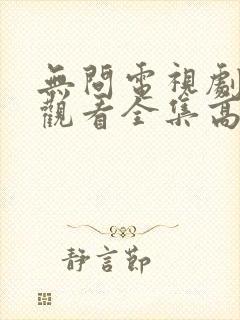 無間電視劇
觀看全集高
靜言節